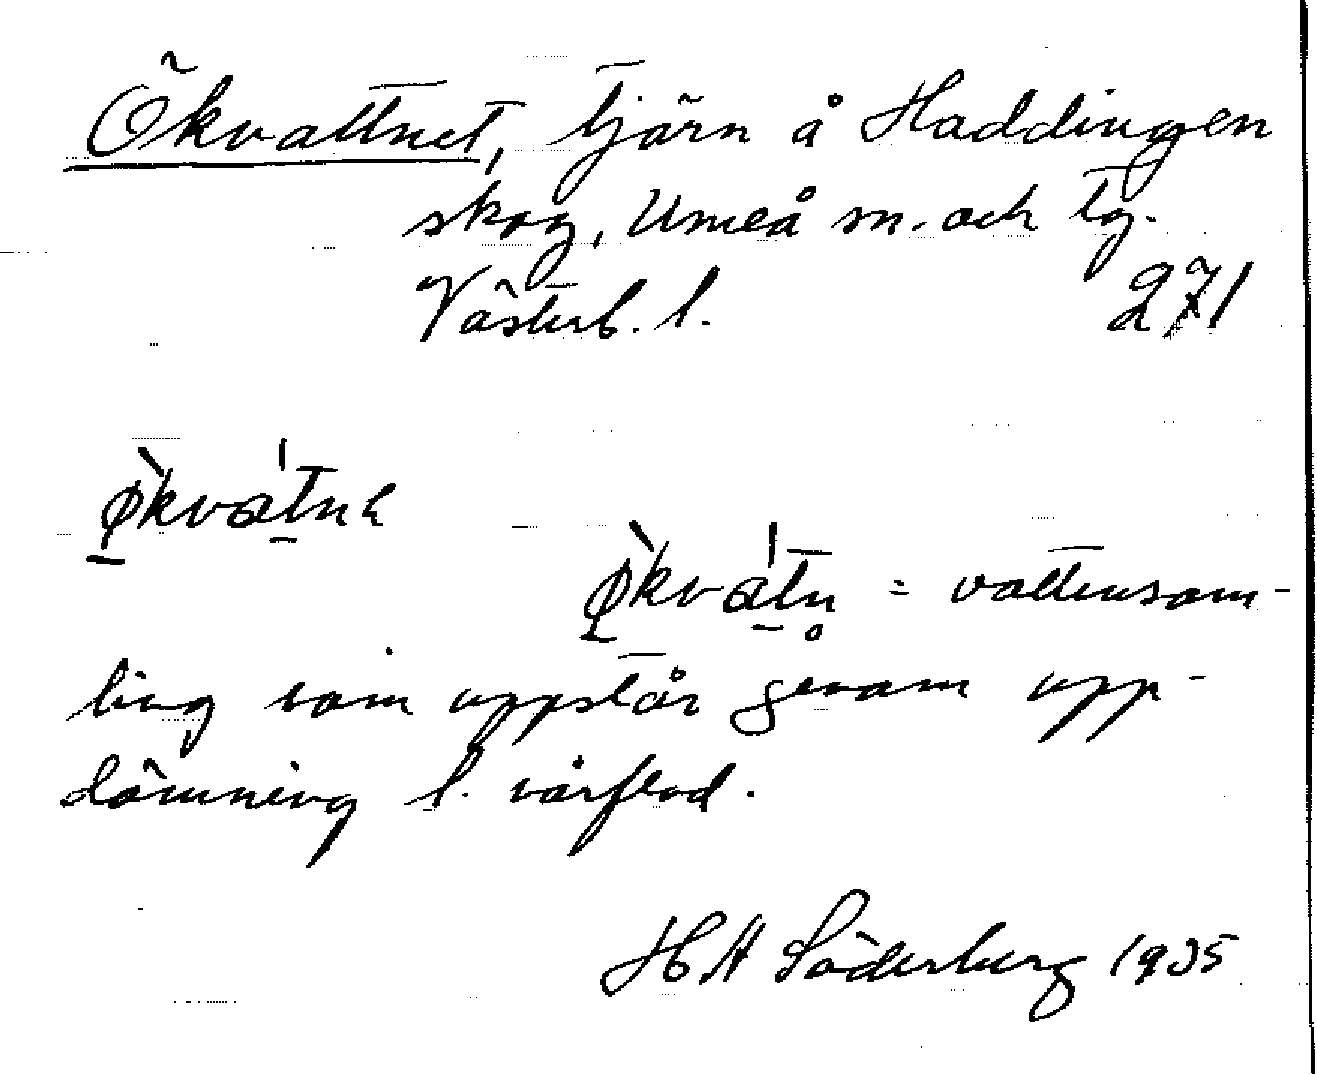 Ökvattnet, tjärn å Haddingen
skog, Umeå sn. och tg.
Västerb. l. 271
ø̲̀kvát̲nɛ
ø̲̀kvát̲n̥ = vattensam-
ling som uppstår genom upp-
dämning l. vårflod.
H A Söderberg 1935